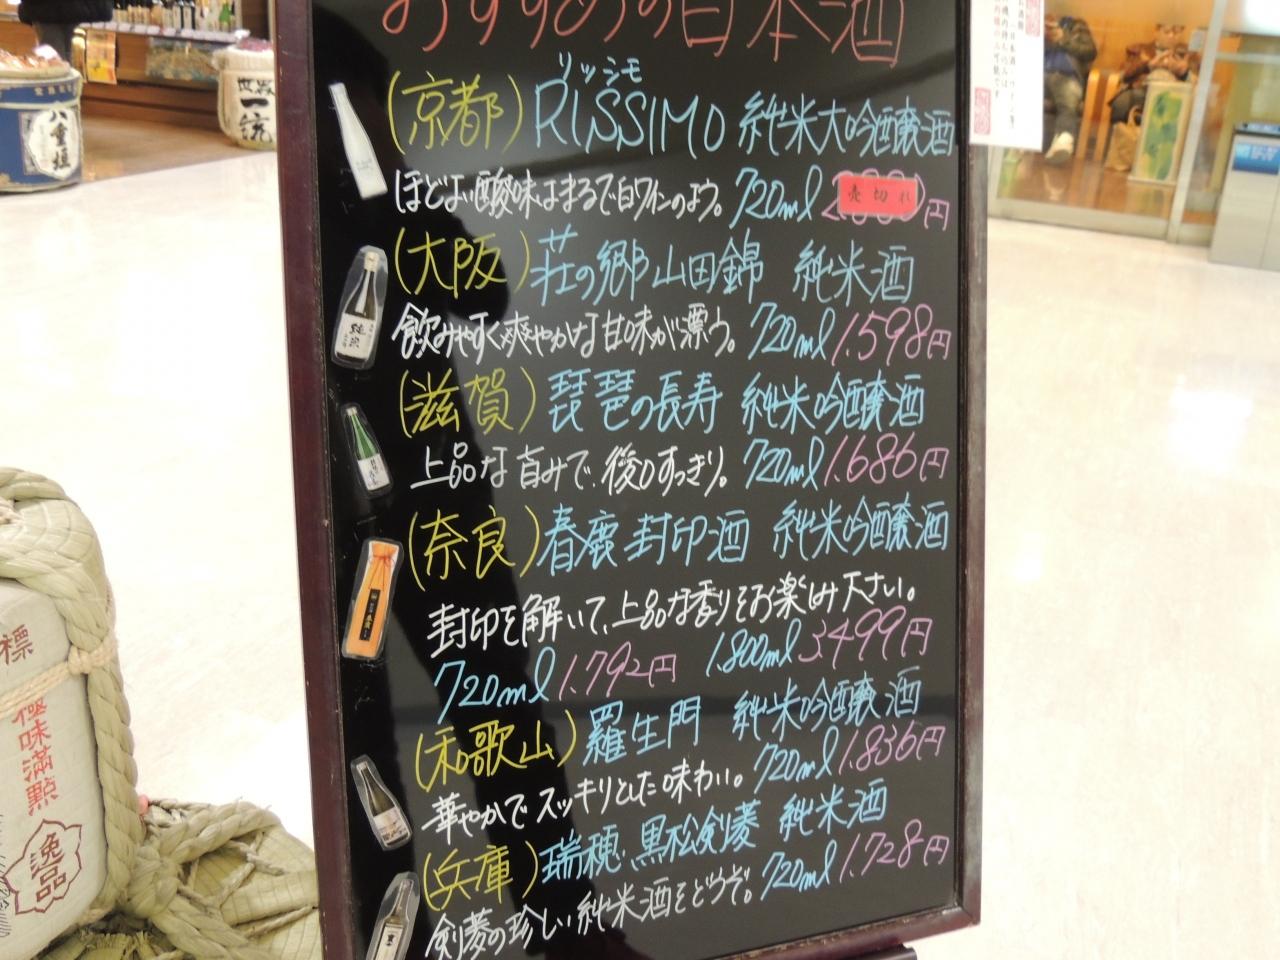 おすすめの日本酒
リッシモ
(京都) RISSIMO 純米大吟醸酒
ほどよい酸味はまるで白ワインのよう。 720ml 売切れ 円
(大阪) 荘の郷 山田錦 純米酒
飲みやすく爽やかな甘味が漂う。 720ml 1.598円
(滋賀) 琵琶の長寿 純米吟醸酒
上品な旨みで、後口すっきり。 720ml 1.686円
(奈良) 春鹿 封印酒 純米吟醸酒
封印を解いて、上品な香りをお楽しみ下さい。
720ml 1.792円 1.800ml 3.499円
(和歌山) 羅生門 純米吟醸酒
華やかでスッキリとした味わい。 720ml 1.836円
(兵庫) 瑞穂 黒松剣菱 純米酒
剣菱の珍しい純米酒をどうぞ。 720ml 1.728円
八重垣
世界一統
標
極味滿點
逸品